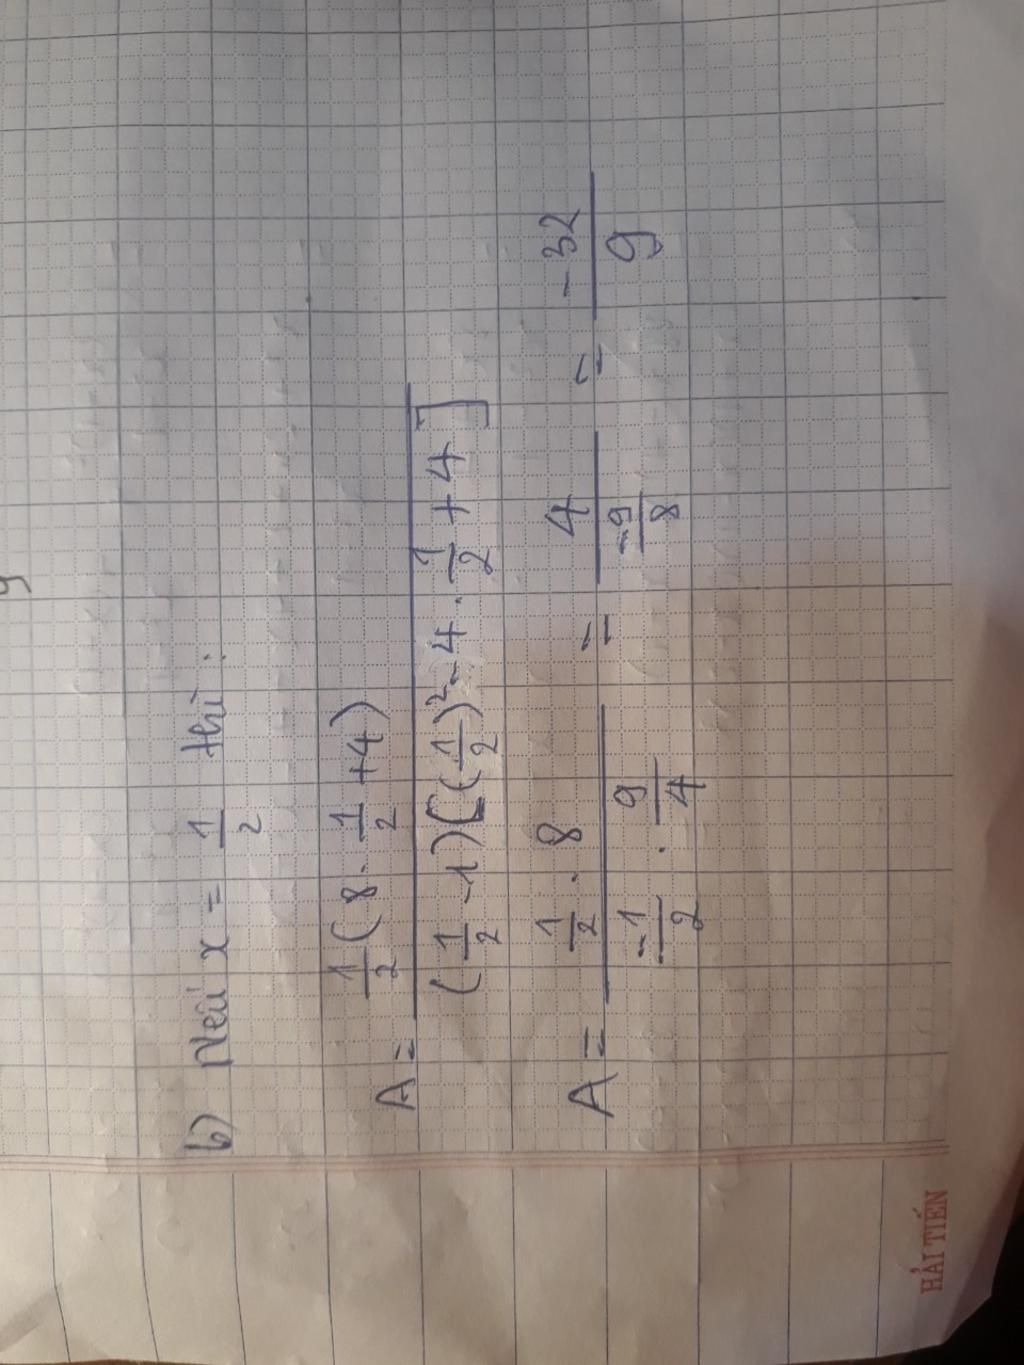 b) Nếu x = 1/2 thì:
A = 1/2(8 . 1/2 + 4) / (1/2 - 1)[(1/2)² - 4 . 1/2 + 4]
A = 1/2 . 8 / -1/2 . 9/4 = 4 / -9/8 = -32/9
HẢI TIẾN